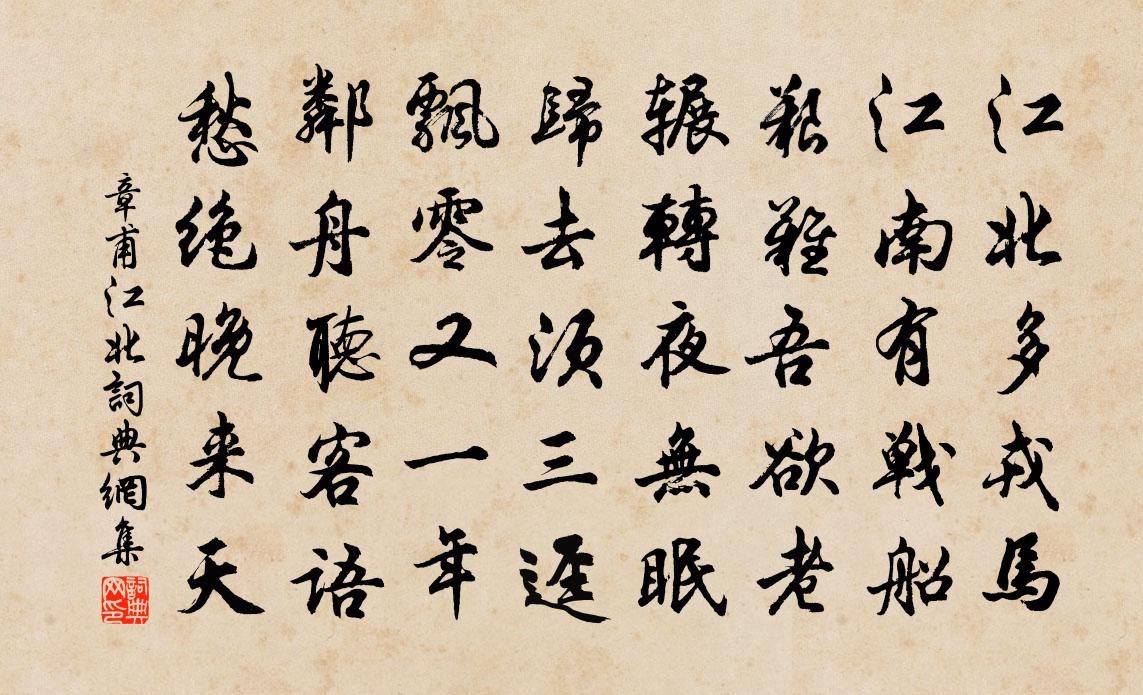 江北多戎馬
江南有戰船
艱難吾欲老
輾轉夜無眠
歸去須三逕
飄零又一年
鄰舟聽客語
愁絶晚来天
章甫江北詞典網集
詞典网印